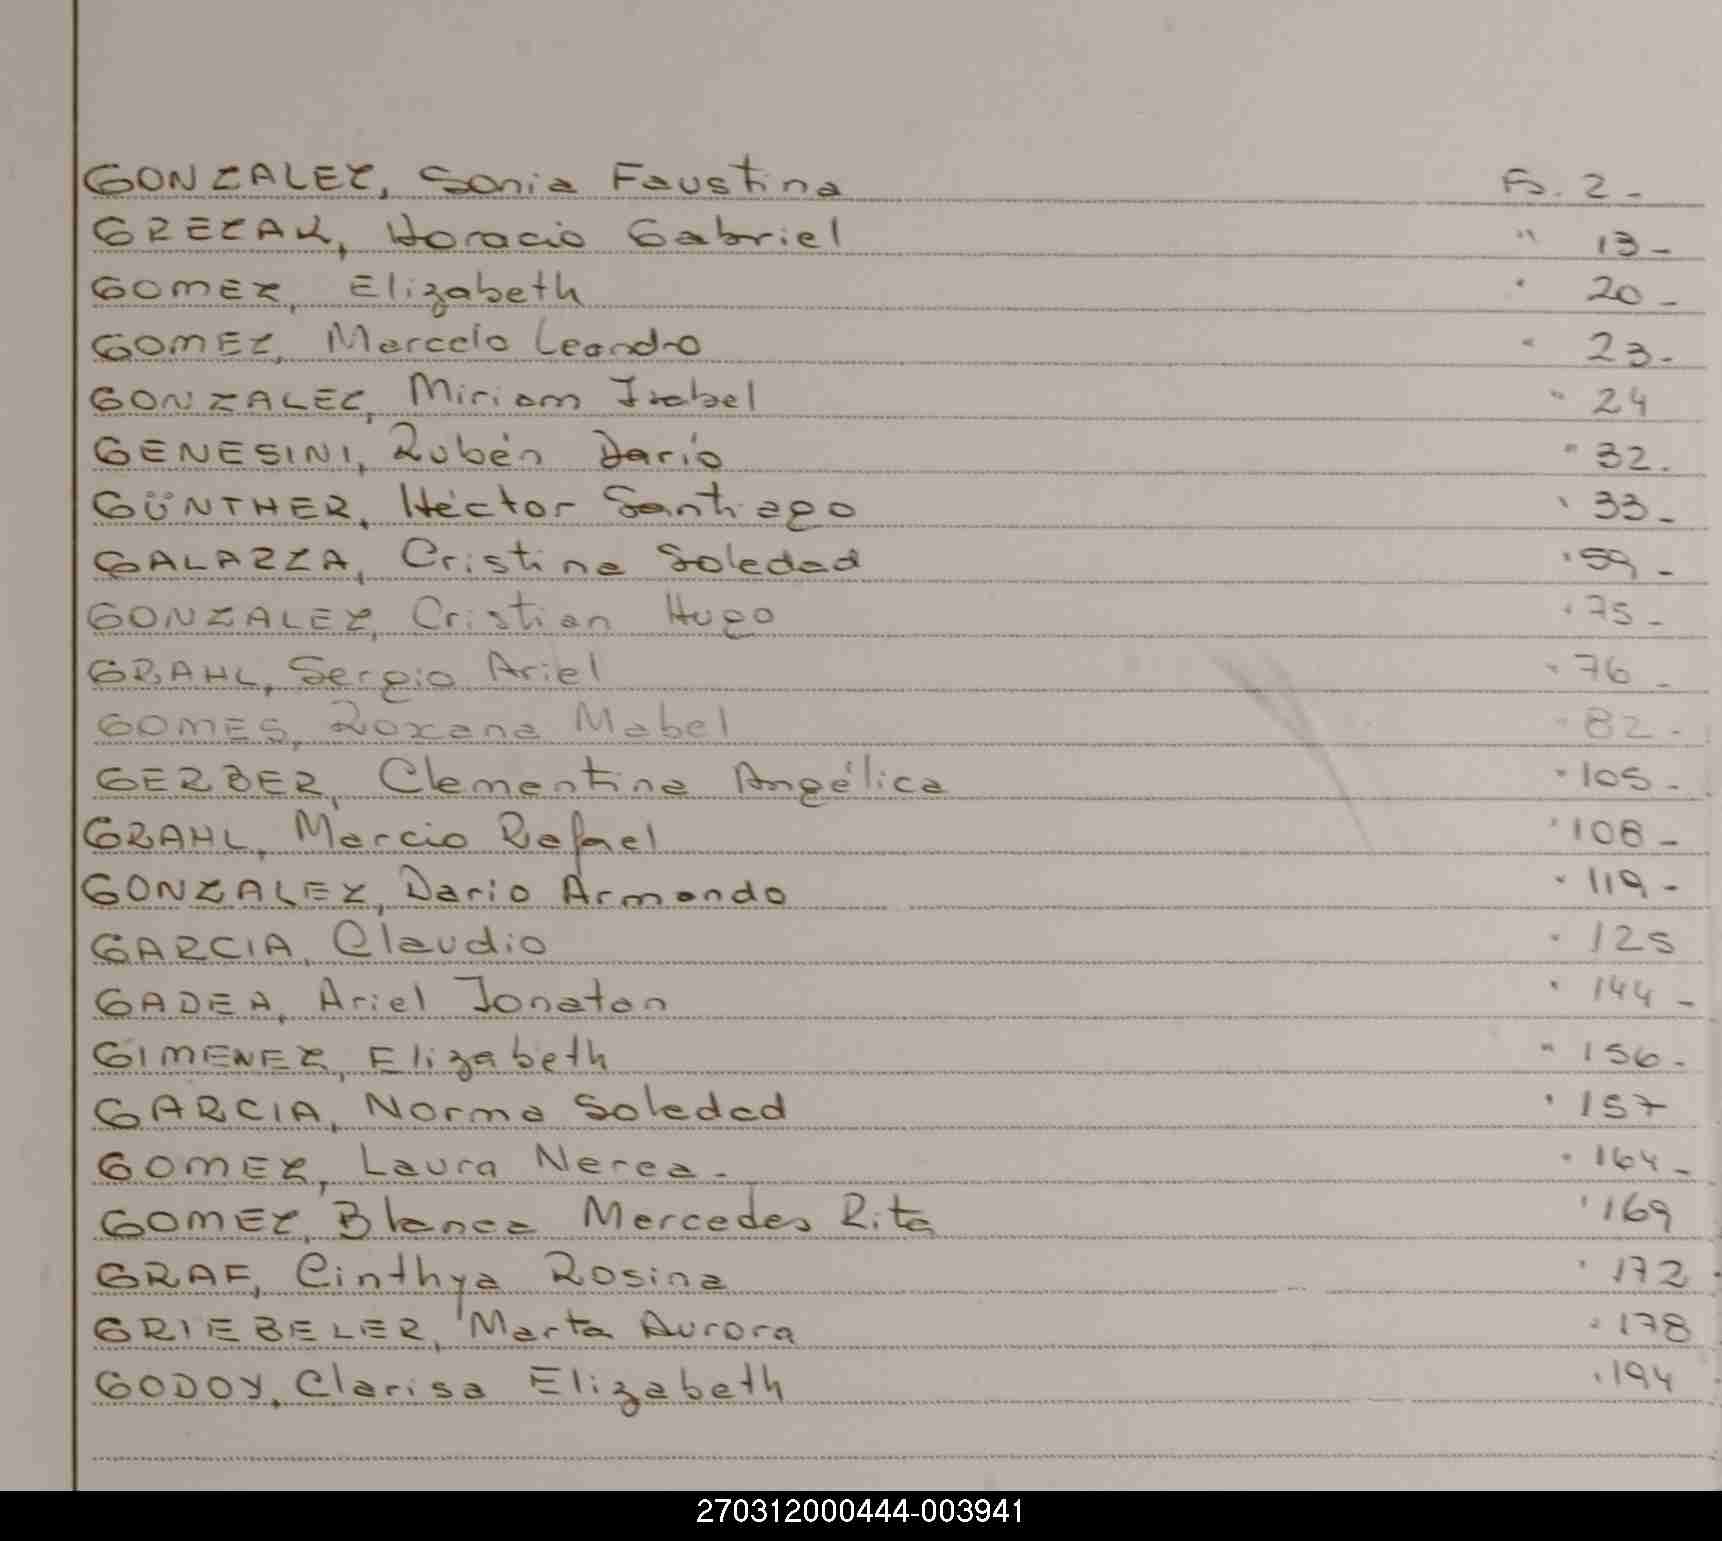 GONZALEZ, Sonia Faustina Fo. 2-
GREZAK, Horacio Gabriel " 13-
GOMEZ, Elizabeth " 20-
GOMEZ, Marcelo Leandro " 23-
GONZALEZ, Miriam Isabel " 24
GENESINI, Rubén Darío " 32.
GÜNTHER, Héctor Santiago " 33-
GALAZZA, Cristina Soledad " 59-
GONZALEZ, Cristian Hugo " 75-
GRAHL, Sergio Ariel " 76-
GOMES, Roxana Mabel " 82-
GERBER, Clementina Angélica " 105-
GRAHL, Marcio Rafael " 108-
GONZALEZ, Dario Armando " 119-
GARCIA, Claudio " 125
GADEA, Ariel Jonatan " 144-
GIMENEZ, Elizabeth " 156-
GARCIA, Norma Soledad " 157
GOMEZ, Laura Nerea- " 164-
GOMEZ, Blanca Mercedes Rita " 169
GRAF, Cinthya Rosina " 172
GRIEBELER, Marta Aurora " 178
GODOY, Clarisa Elizabeth " 194
270312000444-003941